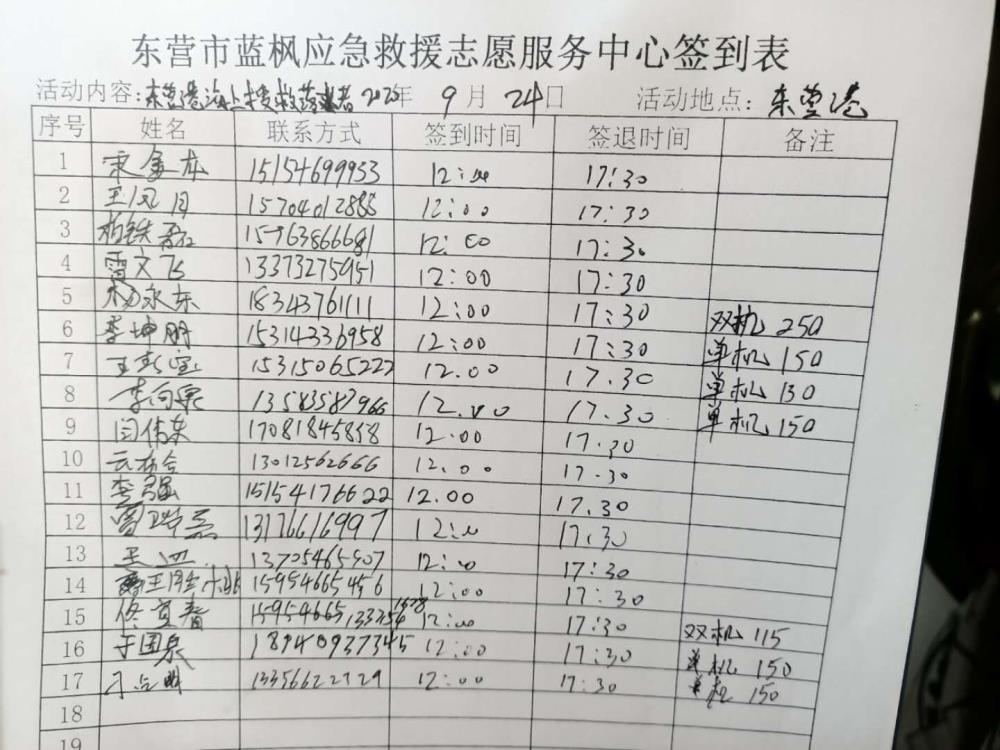 东营市蓝枫应急救援志愿服务中心签到表
活动内容:东营港海上搜救落水者 2025年 9月 24日 活动地点:东营港
序号 姓名 联系方式 签到时间 签退时间 备注
1 宋金东 15154699953 12:00 17:30
2 王凤月 15704012888 12:00 17:30
3 15763866681 12:00 17:30
4 雷文飞 13373275951 12:00 17:30
5 杨永东 18343761111 12:00 17:30 双机 250
6 李坤朋 15314336958 12:00 17:30 单机 150
7 王彭宝 15315065222 12.00 17.30 单机 130
8 李向泉 13583587966 12.00 17.30 单机 150
9 闫伟东 17081845858 12.00 17.30
10 13012562666 12.00 17.30
11 李强 15154176622 12.00 17.30
12 13176616997 12:00 17:30
13 王 13705465907 12:00 17:30
14 15954665456 12:00 17:30
15 12:00 17:30 双机 115
16 于国泉 18940937345 12:00 17:30 单机 150
17 刁点明 13356622729 12:00 17:30 单机 150
18
19